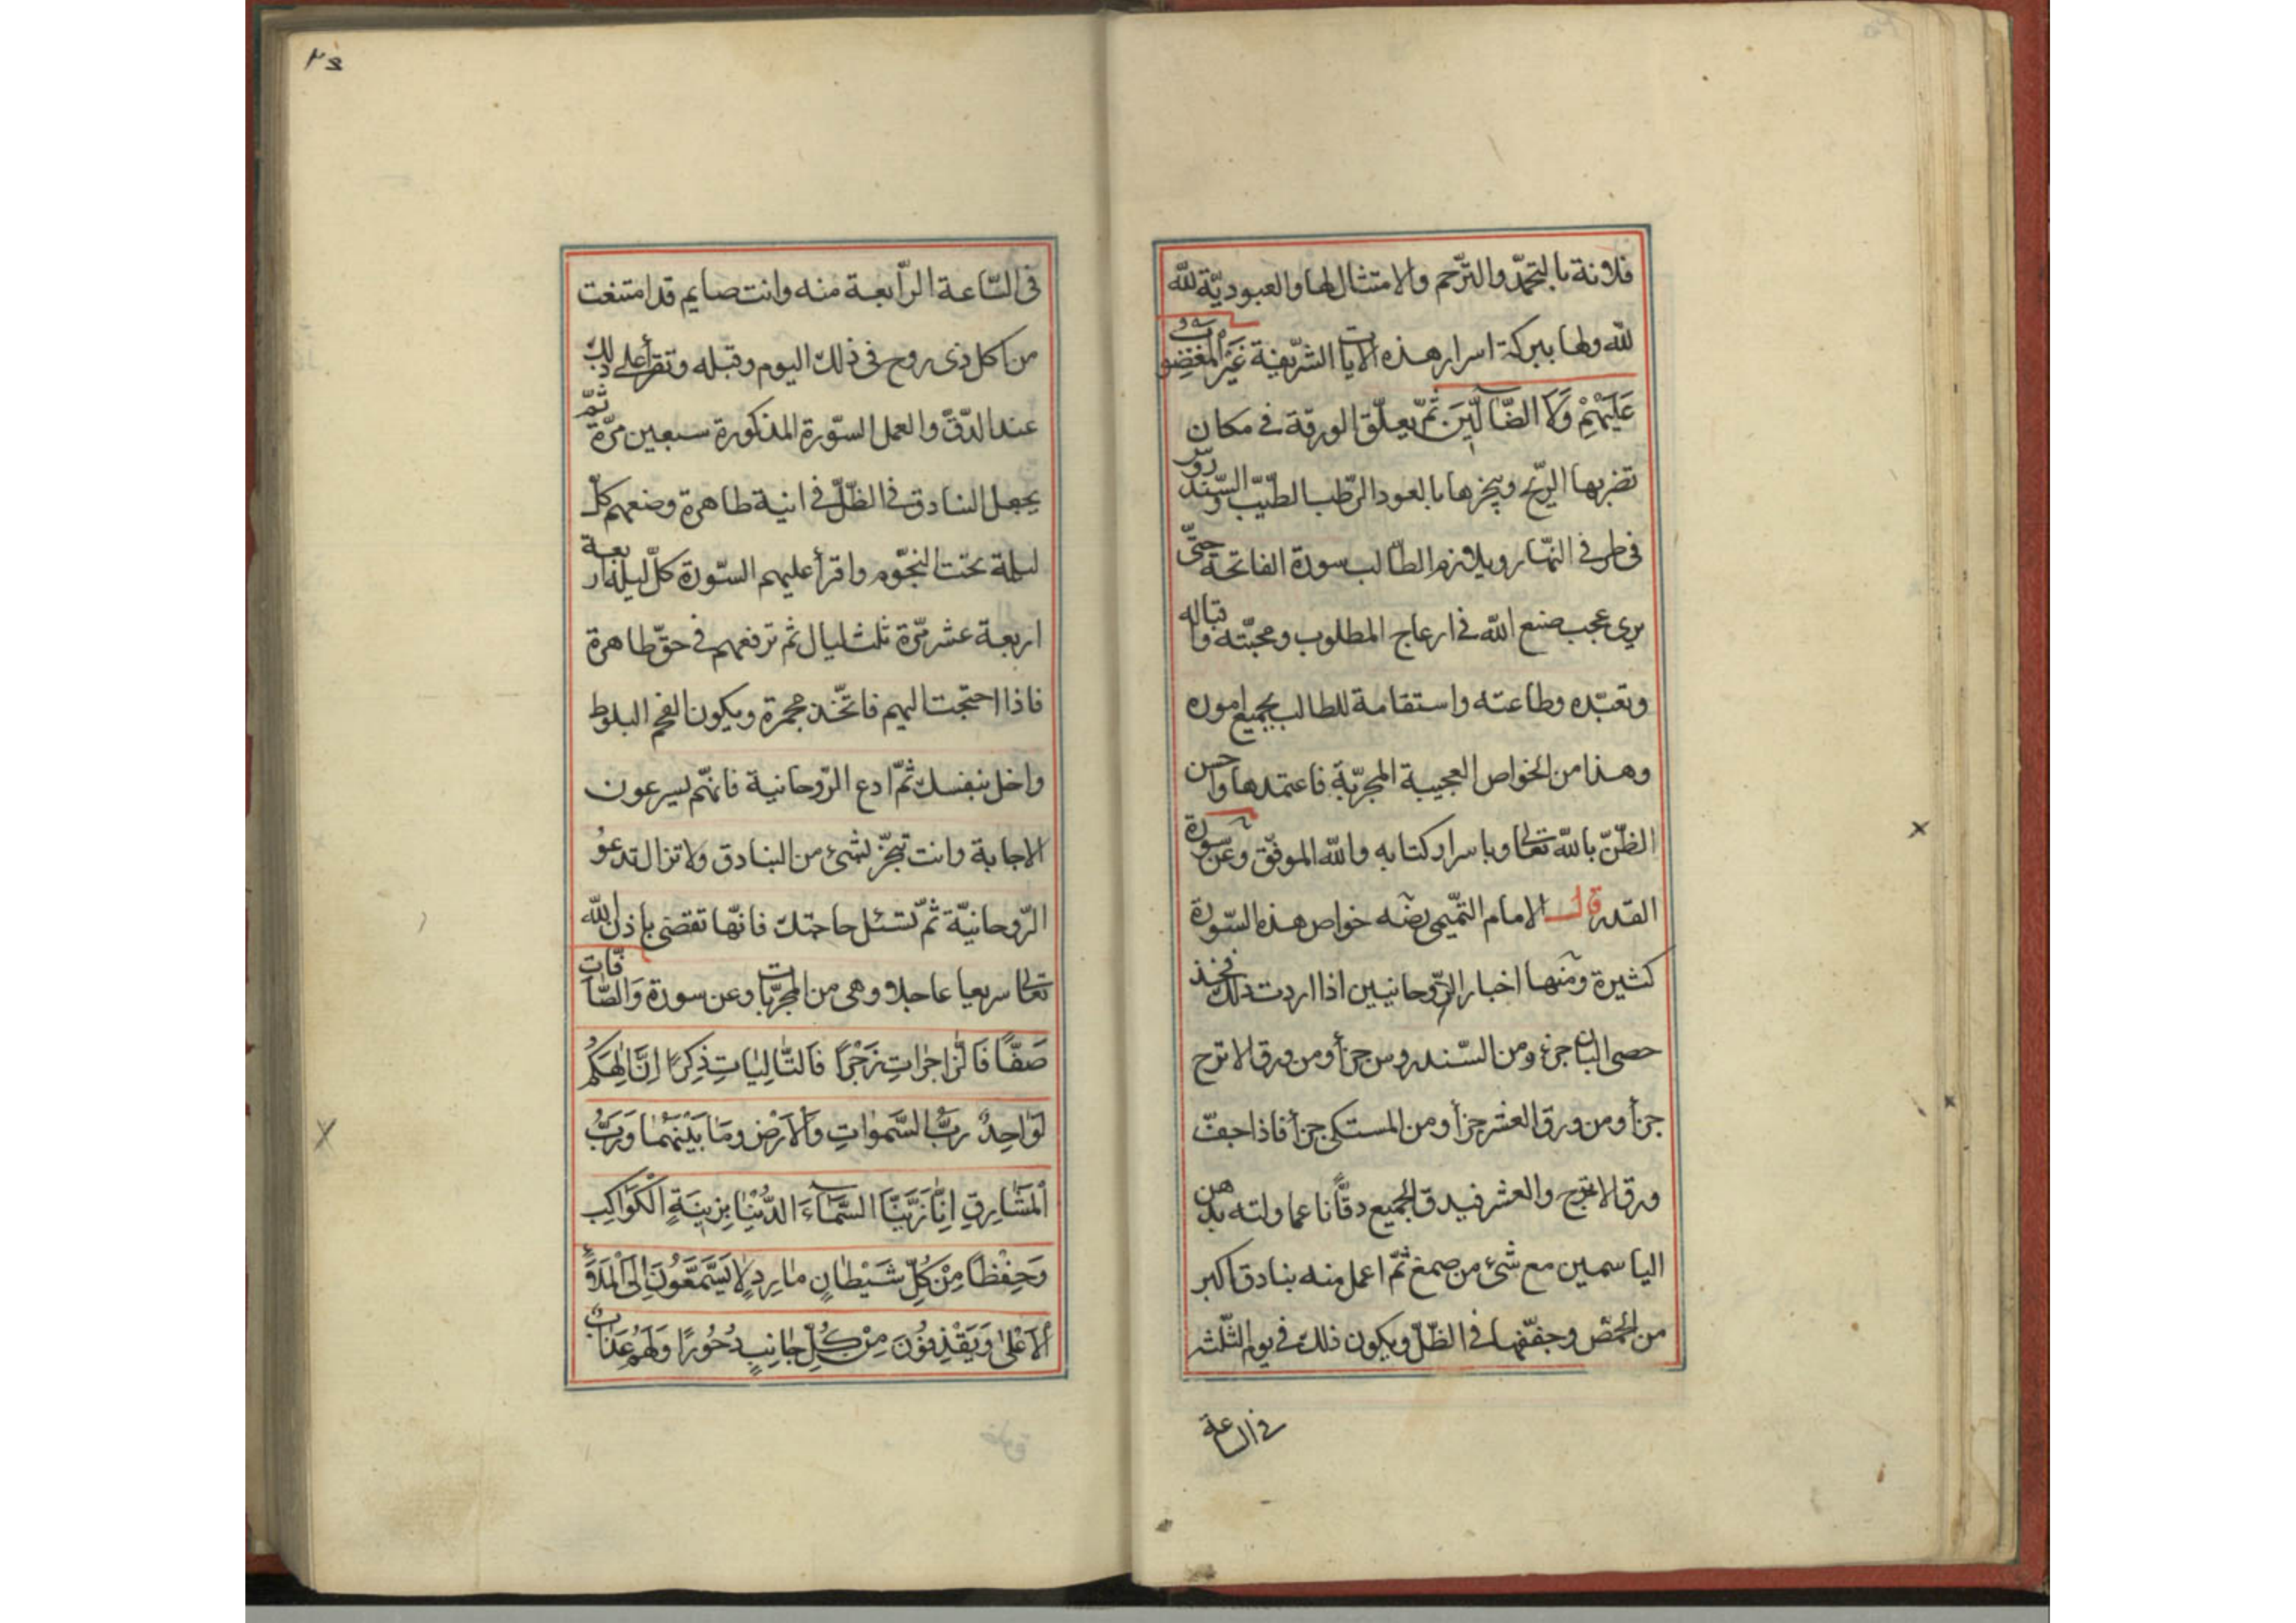 فلانة بالتحمد والترحم والامتثال لها والعبوديّة لله
لله ولها ببركة اسرار هذه الايات الشريفة غَيْرِ الْمَغْضُوبِ
عَلَيْهِمْ وَلَا الضَّآلّينَ ثمّ يعلّق الورقة فى مكان
تضربها الريح ويبخرها بالعود الرّطب الطيّب والسّندروس
فى طرفى النهار ويلازم الطّالب سورة الفاتحة حتّى
يرى عجب صنع الله فى ارعاج المطلوب ومحبّته واقباله
وتعبّده وطاعته واستقامة للطالب بجميع اموره
وهذا من الخواص العجيبة المجرّبة فاعتمدها واحسن
الظّنّ بالله تعالى وباسرار كتابه والله الموفّق وعن سورة
القدر قال الامام التّميمى رضه خواص هذه السّورة
كثيرة ومنها اخبار الرّوحانيين اذا اردت ذلك فخذ
حصى البان جزء ومن السّندروس جزأ ومن ورق الاترج
جزأ ومن ورق العشر جزأ ومن المستكى جزأ فاذا جفّت
ورق الاترج والعشر فيدق الجميع دقّا ناعما ولته بدهن
الياسمين مع شئ من صمغ ثمّ اعمل منه بنادق اكبر
من الحمّص وجفّفها فى الظّلّ ويكون ذلك فى يوم الثّلث
فى الساعة
فى السّاعة الرّابعة منه وانت صايم قد امتنعت
من اكل ذى روح فى ذلك اليوم وقبله وتقرأ على ذلك
عند الدّقّ والعمل السّورة المذكورة سبعين مرّة ثمّ
يجعل البنادق فى الظّلّ فى انية طاهرة وضعهم كلّ
ليلة تحت النجّوم واقرأ عليهم السّورة كلّ ليلة اربعة
اربعة عشر مرّة ثلث ليال ثم ترفعهم فى حقّ طاهرة
فاذا احتجت اليهم فاتخّذ مجمرة ويكون الفحم البلوط
واخل بنفسك ثمّ ادع الرّوحانية فانهّم يسرعون
الاجابة وانت تبخّر بشئ من البنادق ولا تزال تدعوُ
الرّوحانيّة ثمّ تسئل حاجتك فانّها تقضى باذن الله
تعالى سريعا عاجلا وهى من المجرّبات وعن سورة وَالصّافّات
صَفّاً فَالزّاجِراتِ زَجْرًا فَالتّالِياتِ ذِكْرًا اِنَّ اِلٰهَكُمْ
لَوَاحِدٌ رَبُّ السَّمٰوَاتِ وَالْاَرْضِ وَمَا بَيْنَهُمٰا وَرَبُّ
الْمَشَارِقِ اِنَّا زَيَّنَّا السَّمَآءَ الدُّنْيٰا بِزِينَةٍ الْكَوَاكِبِ
وَحِفْظًا مِنْ كُلِّ شَيْطٰانٍ مٰارِدٍ لَا يَسَّمَّعُونَ اِلَى الْمَلَاِ
الْاَعْلٰى وَيَقْذِفُونَ مِنْ كُلِّ جٰانِبٍ دُحُورًا وَلَهُمْ عَذَابٌ